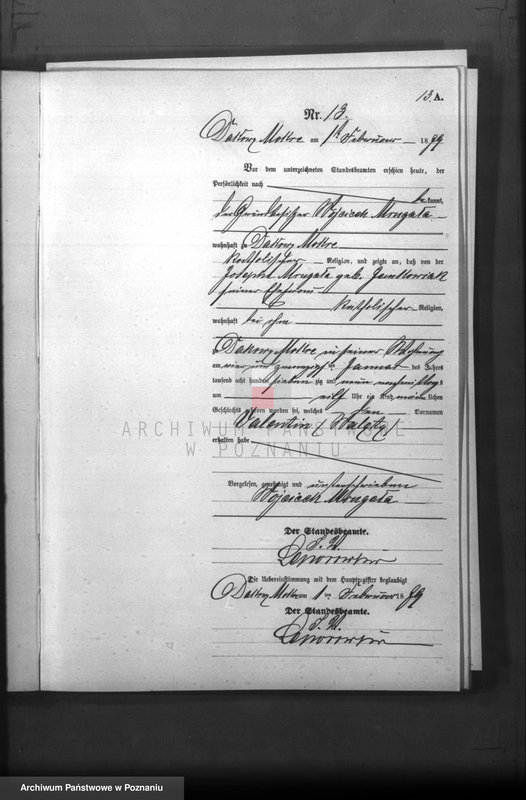 13. A.
Nr. 13.
Dakowy Mokre am 1ten Februar 1879
Vor dem unterzeichneten Standesbeamten erschien heute, der
Persönlichkeit nach
bekannt,
der Grundbesitzer Wojciech Mrugala
wohnhaft zu Dakowy Mokre
katholischer Religion, und zeigte an, daß von der
Josepha Mrugala geb.
seiner Ehefrau
katholischer Religion,
wohnhaft bei ihm
zu Dakowy Mokre in seiner Wohnung
am ten Januar des Jahres
tausend acht hundert sieben zig und neun
um Uhr ein Kind männlichen
Geschlechts geboren worden sei, welches den Vornamen
Valentin / Walenty /
erhalten habe
Vorgelesen, genehmigt und unterschrieben
Wojciech Mrugala
Der Standesbeamte.
Die Uebereinstimmung mit dem Hauptregister beglaubigt
Dakowy Mokre am 1ten Februar 1879
Der Standesbeamte.
ARCHIWUM PAŃSTWOWE
W POZNANIU
Archiwum Państwowe w Poznaniu